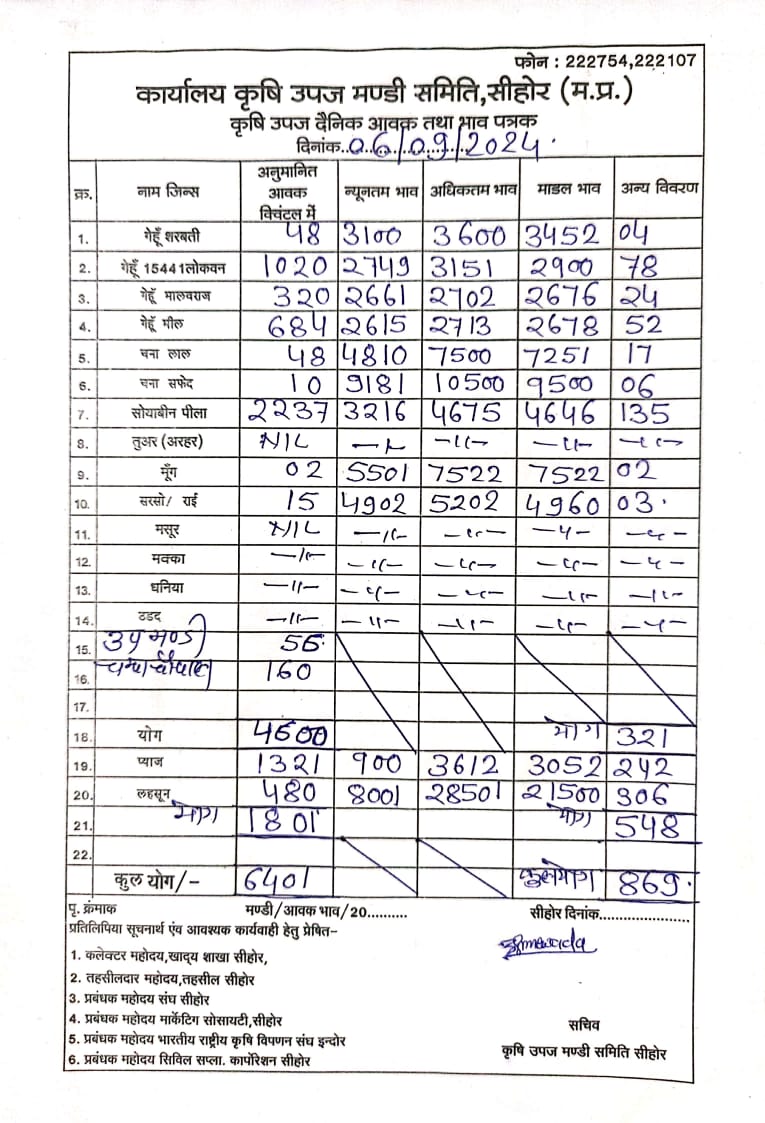 फोन : 222754,222107
कार्यालय कृषि उपज मण्डी समिति,सीहोर (म.प्र.)
कृषि उपज दैनिक आवक तथा भाव पत्रक
दिनांक..06/09/2024.
क्र. नाम जिन्स अनुमानित आवक क्विंटल में न्यूनतम भाव अधिकतम भाव माडल भाव अन्य विवरण
1. गेहूँ शरबती 48 3100 3600 3452 04
2. गेहूँ 15441लोकवन 1020 2749 3151 2900 78
3. गेहूँ मालवराज 320 2661 2702 2676 24
4. गेहूँ मील 684 2615 2713 2678 52
5. चना लाल 48 4810 7500 7251 17
6. चना सफेद 10 9181 10500 9500 06
7. सोयाबीन पीला 2237 3216 4675 4646 135
8. तुअर (अरहर) NIL –〃– –〃– –〃– –〃–
9. मूँग 02 5501 7522 7522 02
10. सरसो/ राई 15 4902 5202 4960 03.
11. मसूर NIL –〃– –〃– –〃– –〃–
12. मक्का –〃– –〃– –〃– –〃– –〃–
13. धनिया –〃– –〃– –〃– –〃– –〃–
14. उडद –〃– –〃– –〃– –〃– –〃–
15. उपमण्डी 56.
16. 160
17.
18. योग 4600 योग 321
19. प्याज 1321 900 3612 3052 242
20. लहसून 480 8001 28501 21500 306
21. योग 1801 योग 548
22.
कुल योग/- 6401 कुलयोग 869.
पृ. क्रंमाक मण्डी/आवक भाव/20.......... सीहोर दिनांक......................
प्रतिलिपिया सूचनार्थ एंव आवश्यक कार्यवाही हेतु प्रेषित–
1. कलेक्टर महोदय,खाद्य शाखा सीहोर,
2. तहसीलदार महोदय,तहसील सीहोर
3. प्रबंधक महोदय संघ सीहोर
4. प्रबंधक महोदय मार्केटिग सोसायटी,सीहोर
सचिव
5. प्रबंधक महोदय भारतीय राष्ट्रीय कृषि विपणन संघ इन्दोर
कृषि उपज मण्डी समिति सीहोर
6. प्रबंधक महोदय सिविल सप्ला. कार्पोरेशन सीहोर